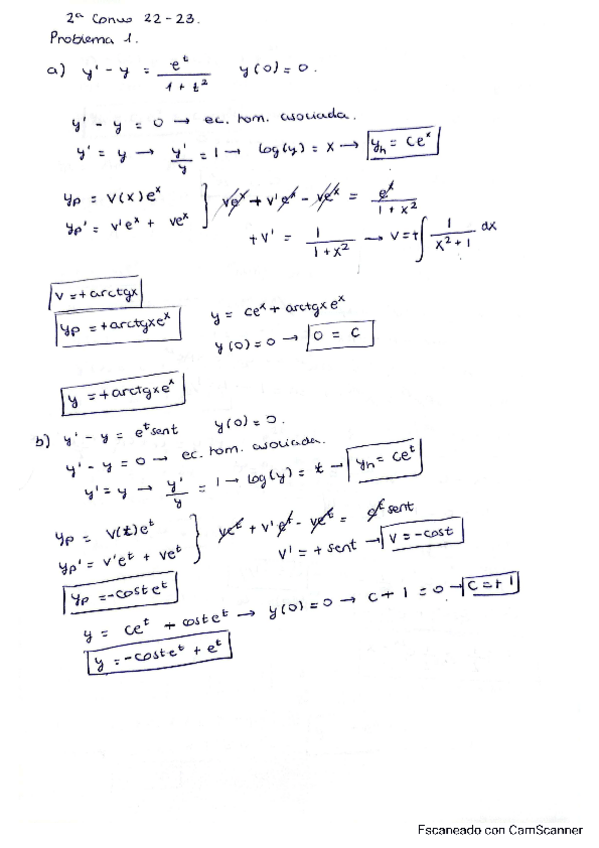 2ª Convo 22-23.
Problema 1.
a) y' - y = e^t / (1 + t²)   y(0) = 0.
y' - y = 0 → ec. hom. asociada.
y' = y → y'/y = 1 → log(y) = x → yh = ce^x
yp = v(x)e^x } ve^x + v'e^x - ve^x = e^x / (1 + x²)
yp' = v'e^x + ve^x
+v' = 1 / (1 + x²) → v = + ∫ 1 / (x² + 1) dx
v = + arctgx
yp = + arctgxe^x   y = ce^x + arctgxe^x
y(0) = 0 → 0 = c
y = + arctgxe^x
b) y' - y = e^t sent   y(0) = 0.
y' - y = 0 → ec. hom. asociada.
y' = y → y'/y = 1 → log(y) = t → yh = ce^t
yp = v(t)e^t } ve^t + v'e^t - ve^t = e^t sent
yp' = v'e^t + ve^t   v' = + sent → v = -cost
yp = -coste^t
y = ce^t + coste^t → y(0) = 0 → c + 1 = 0 → c = +1
y = -coste^t + e^t
Escaneado con CamScanner